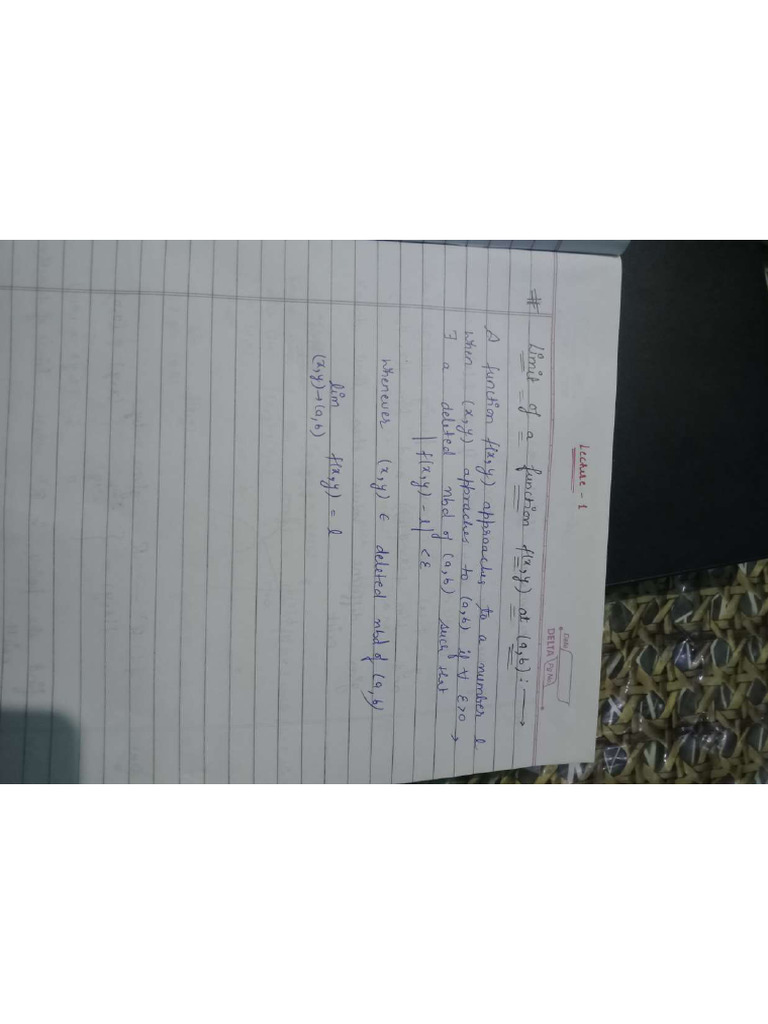 Lecture - 1
DATE
DELTA Pg No.
# Limit of a function f(x,y) at (a,b) : ⟶
A function f(x,y) approaches to a number l
when (x,y) approaches to (a,b) if ∀ ε>0 →
∃ a deleted nbd of (a,b) such that
|f(x,y) - l| < ε
whenever (x,y) ∈ deleted nbd of (a,b)
lim f(x,y) = l
(x,y)→(a,b)